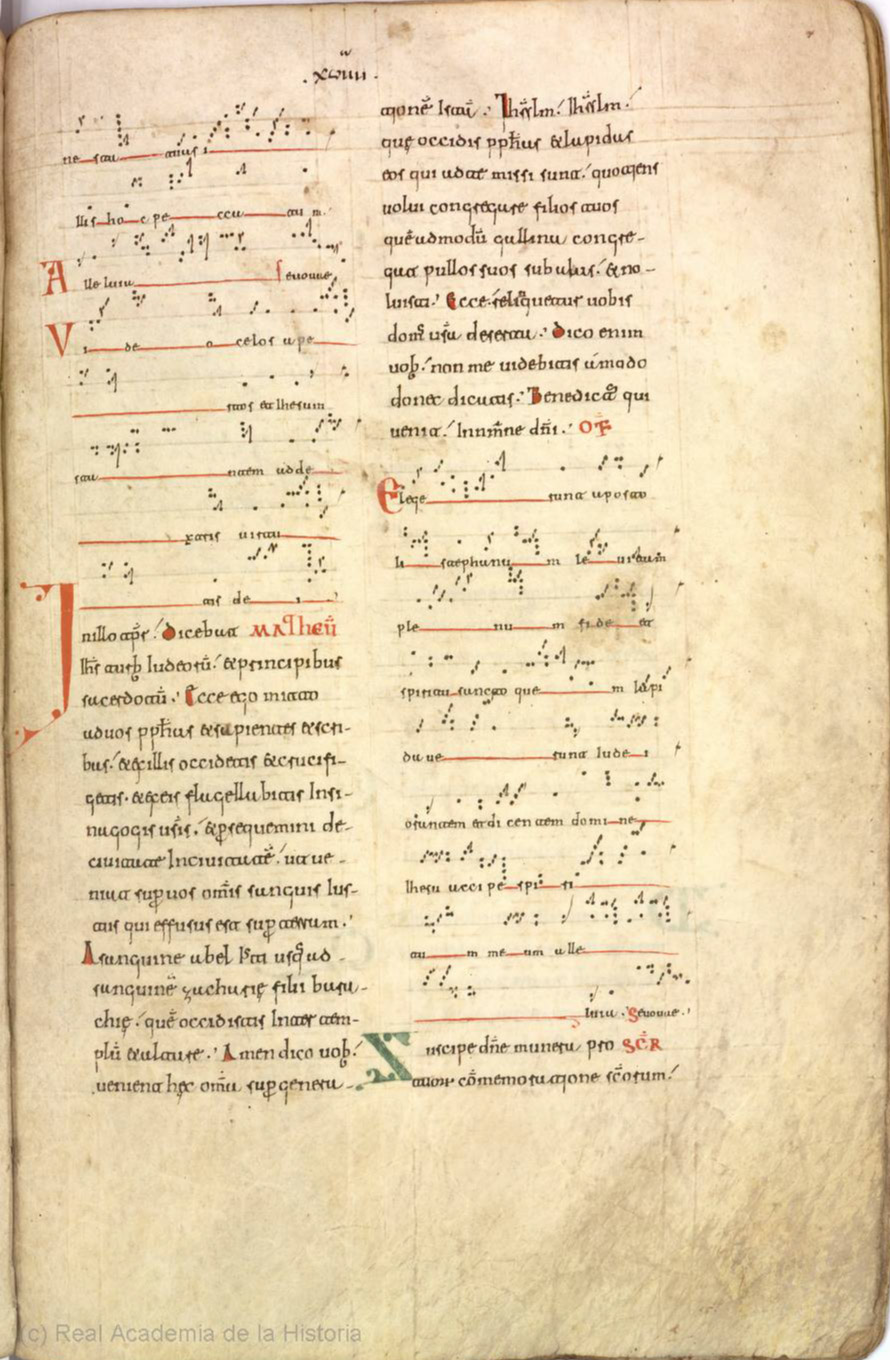 .xỏviiii.
ne sta tuas i
llis hoc pec ca tum
Alleluia Seuouae
Vi de o celos ape
rtos et Ihesum
stantem ad de
xtris uirtu
tis de i
In illo tp̄r. Dicebat MATHEŪ
Ihs̄ turb̄ Iudeorū. & principibus
sacerdotū. Ecce ego mitto
ad uos pph̄tas & sapientes & scri-
bas. & ex illis occidetis & crucifi-
getis. & ex eis flagellabitis In si-
nagogis ur̄is. & p̱sequemini de
ciuitate In ciuitatē. ut ue-
niat sup̱ uos om̄is sanguis Ius-
tus qui effusus est sup̱ terram.
A sanguine abel Iusti usq̄ ad
sanguinē zacharię filii bara-
chię. quē occidistis Inter tem-
plū & altare. Amen dico uob̄.
uenient hęc om̄ia sup̱ genera-
tionē Istā. Ihrs̄lm. Ihrs̄lm.
quę occidis pph̄tas & lapidas
eos qui ad te missi sunt. quotiens
uolui congregare filios tuos
quēadmodū gallina congre-
gat pullos suos sub alas. & no-
luisti. Ecce relinquetur uobis
dom̄ ur̄a deserta. Dico enim
uob̄. non me uidebitis amodo
donec dicatis. Benedict̄ qui
uenit. In nom̄ne dn̄i. OF
Elege runt aposto
li stephanu m leuitam
ple nu m fide et
spiritu sancto que m lapi
da ue runt Iude i
orantem et dicentem domi ne
Ihesu accipe spi ri
tu m me um alle
luia. Seuouae.
Suscipe dn̄e munera pro SCR̄
tuor cōmemoratione sc̄orum.